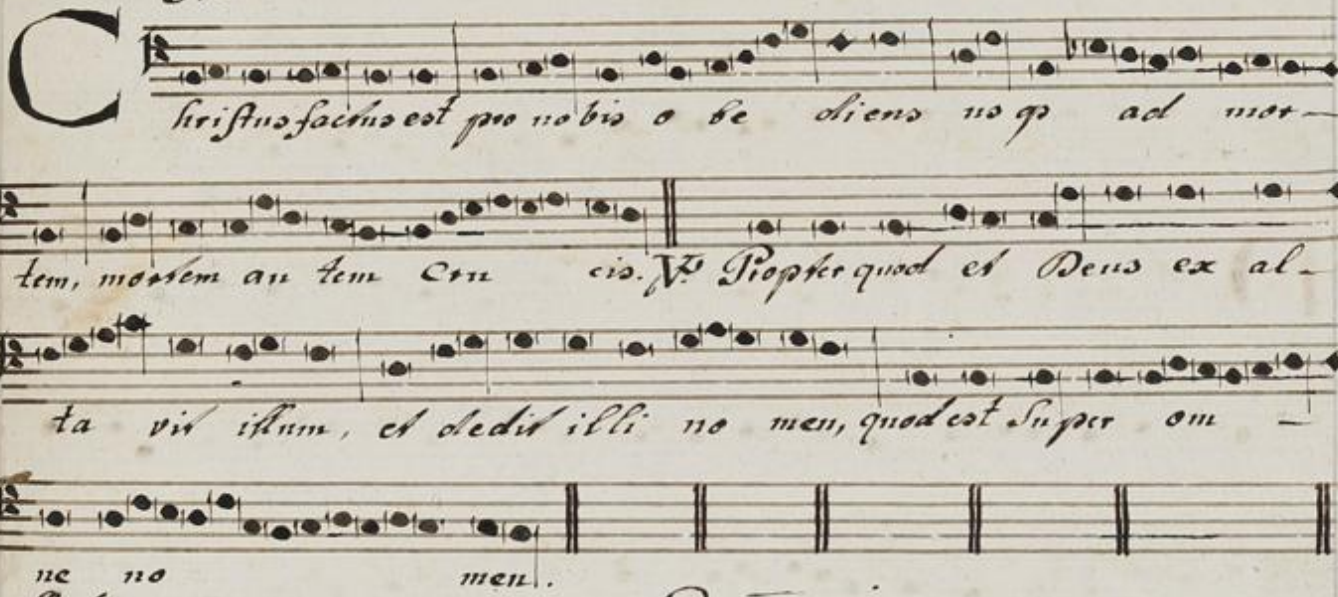 Christus factus est pro nobis o be diens us qз ad mor-
tem, mortem au tem Cru cis. V. Propter quod et Deus ex al-
ta vit illum, et dedit illi no men, quod est super om -
ne no men.